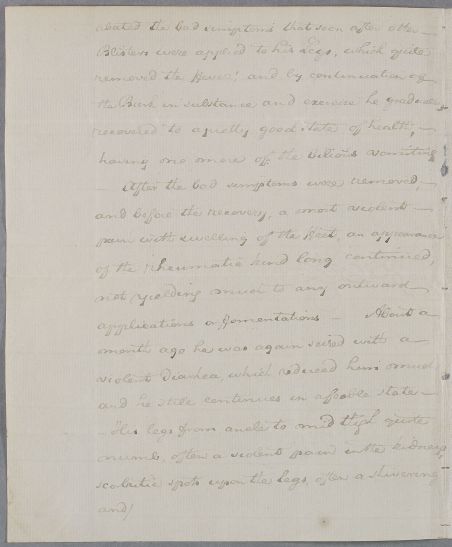 abated the bad symptoms that soon after other
Blisters were applied to his Legs, which quite
removed the Fever! and by continuation of
the Bark in substance and exercise he gradually
recovered to a pretty good state of health, —
having one more of the bilious vomiting
— After the bad symptoms were removed, —
and before the recovery, a most violent —
pain with swelling of the Feet, an appearance
of the rheumatic kind long continued,
not yielding much to any outward
applications or fomentations — About a
month ago he was again seized with a —
violent Diarhea which reduced him much
and he still continues in a feeble state —
— His legs from ancle to mid thigh quite
numb, often a violent pain in the kidneys,
scorbutic spots upon the legs, often a shivering
and/